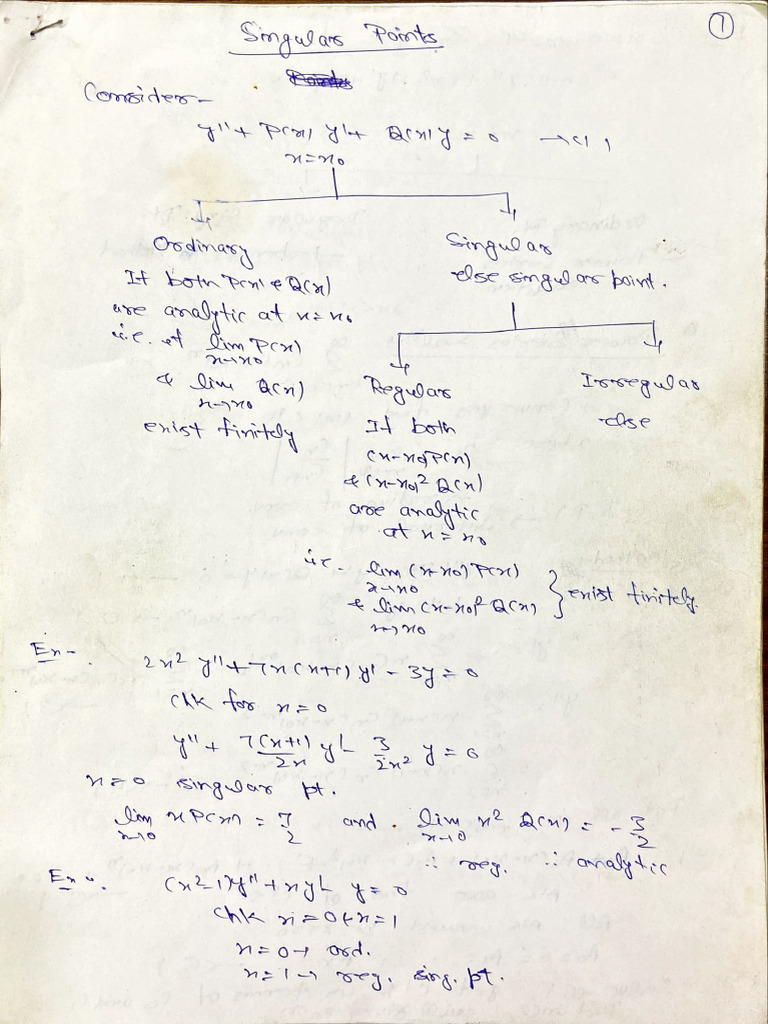 1
Singular Points
Consider-
y'' + P(x) y' + Q(x) y = 0 → (1)
x = x₀
Ordinary
If both P(x) & Q(x)
are analytic at x = x₀
i.e. if lim P(x)
x→x₀
& lim Q(x)
x→x₀
exist finitely
Singular
else singular point.
Regular
If both
(x-x₀)P(x)
& (x-x₀)² Q(x)
are analytic
at x = x₀
i.e. lim (x-x₀) P(x)
x→x₀
& lim (x-x₀)² Q(x)
x→x₀
} exist finitely.
Irregular
else
Ex-
2x² y'' + 7x(x+1) y' - 3y = 0
Chk for x = 0
y'' + 7(x+1)/2x y' - 3/2x² y = 0
x = 0 singular pt.
lim x P(x) = 7/2 and lim x² Q(x) = -3/2
x→0 x→0
∴ reg. ∵ analytic
Ex.
(x²-1)y'' + xy' - y = 0
Chk x = 0 & x = 1
x = 0 → ord.
x = 1 → reg. sing. pt.